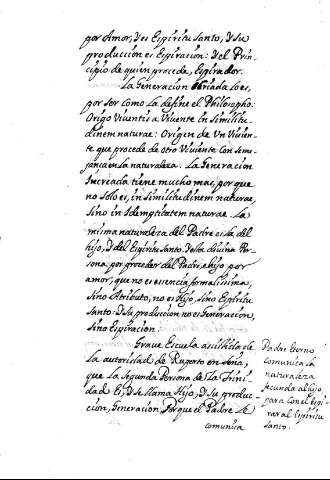 por Amor, y es Espiritu Santo, y su
produccion es Espiracion: y el Prin-
cipio de quien procede, Espirador.
La Generacion Criada lo es,
por ser como la define el Philosopho:
Origo Viventis a Vivente in similitu-
dinem naturae: Origen de Un Vivien-
te que procede de otro Viviente con seme-
janza en la naturaleza. La Generacion
Increada tiene mucho mas, por que
no solo es, in similitudinem naturae,
sino in Idemptitatem naturae. La
misma naturaleza del Padre es la del
hijo, y del Espiritu Santo. y esta divina Per-
sona, por proceder del Padre, e hijo por
amor, que no es essencia formalissima,
sino Atributo, no es Hijo, sino Espiritu
Santo: y su produccion no es Generacion,
sino Espiracion:
Grave Escuela assistida de
la autoridad de Ruperto
que la segunda Persona de la Trini-
dad es, y se llama Hijo, y su produc-
cion, Generacion, Por que el Padre le
comunica
Padre Eterno
comunica la
naturaleza
fecunda al hijo
para con el espi-
rar al Espiritu
Santo.